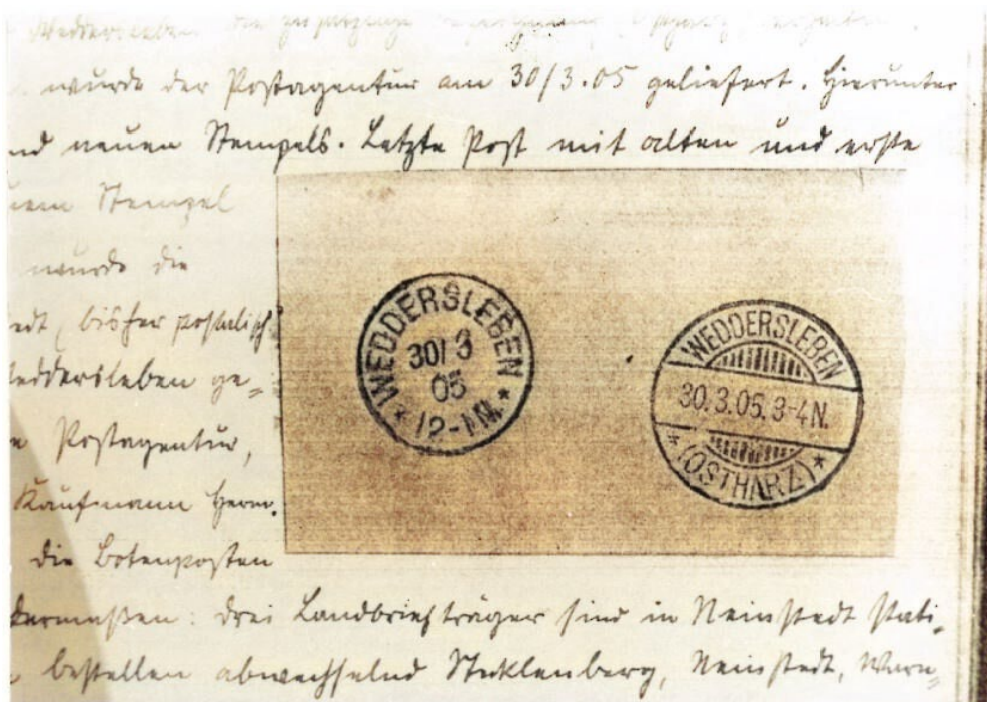 Weddersleben die
wurde der Postagentur am 30/3.05 geliefert. Hierunter
nd neuen Stempels. Letzte Post mit alten und erste
uem Stempel
wurde die
edt (bisher postalisch
Weddersleben ge=
e Postagentur,
Kaufmann Herm.
die Botenposten
dermaßen: drei Landbriefträger sind in Neinstedt stati=
bestellen abwechselnd Stecklenberg, Neinstedt, Warn=
WEDDERSLEBEN
30/3
05
* 12-1N. *
WEDDERSLEBEN
30.3.05.3-4N.
* (OSTHARZ) *